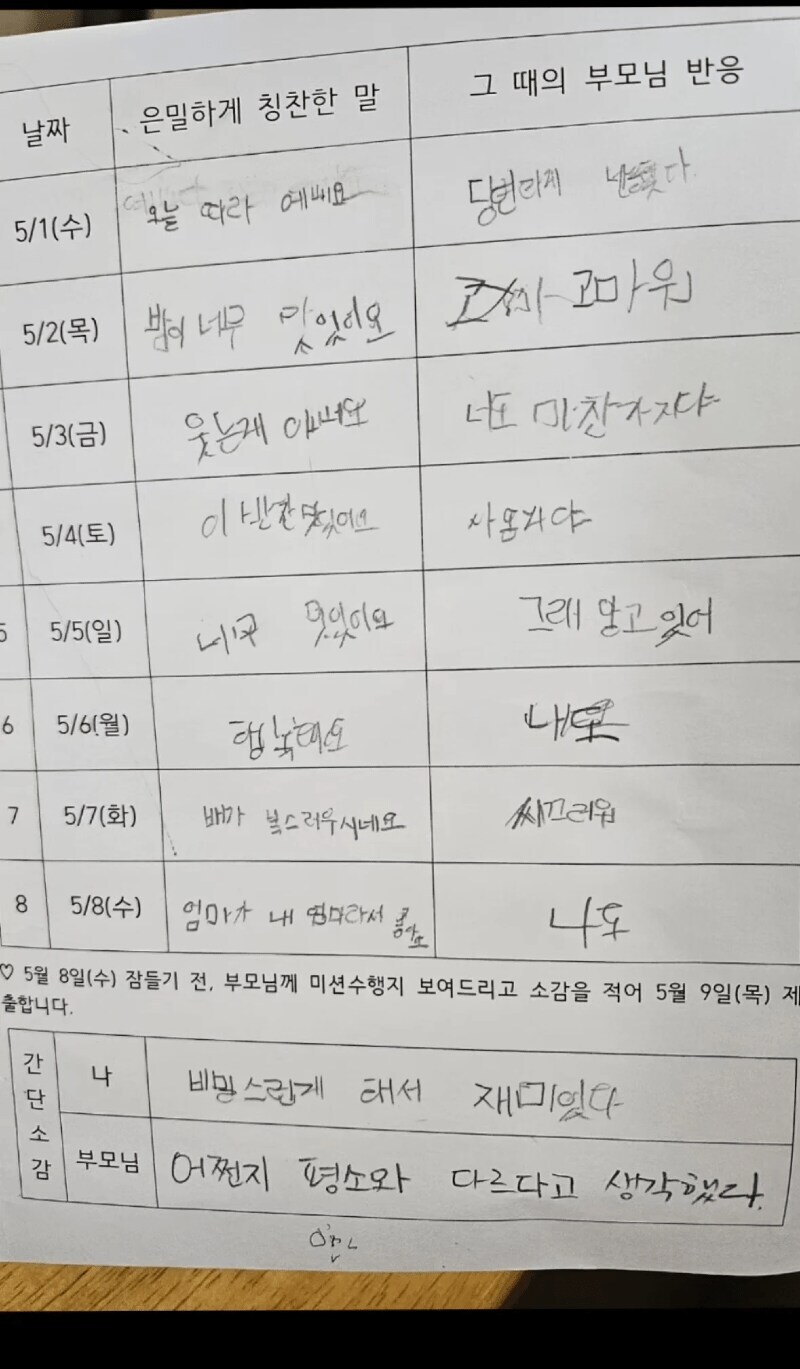 날짜 은밀하게 칭찬한 말 그 때의 부모님 반응
5/1(수) 오늘 따라 예뻐요
5/2(목) 밥이 너무 맛있어요 고마워
5/3(금) 웃는게 너도 마찬가지야
5/4(토) 이 반찬 맛있어요
5 5/5(일) 그래 알고 있어
6 5/6(월) 행복해요 내도
7 5/7(화) 배가 복스러우시네요 씨끄러워
8 5/8(수) 엄마가 내 엄마라서 좋아요 나도
♡ 5월 8일(수) 잠들기 전, 부모님께 미션수행지 보여드리고 소감을 적어 5월 9일(목) 제
출합니다.
간단소감
나 비밍스런게 해서 재미있다
부모님 어쩐지 평소와 다르다고 생각했다.